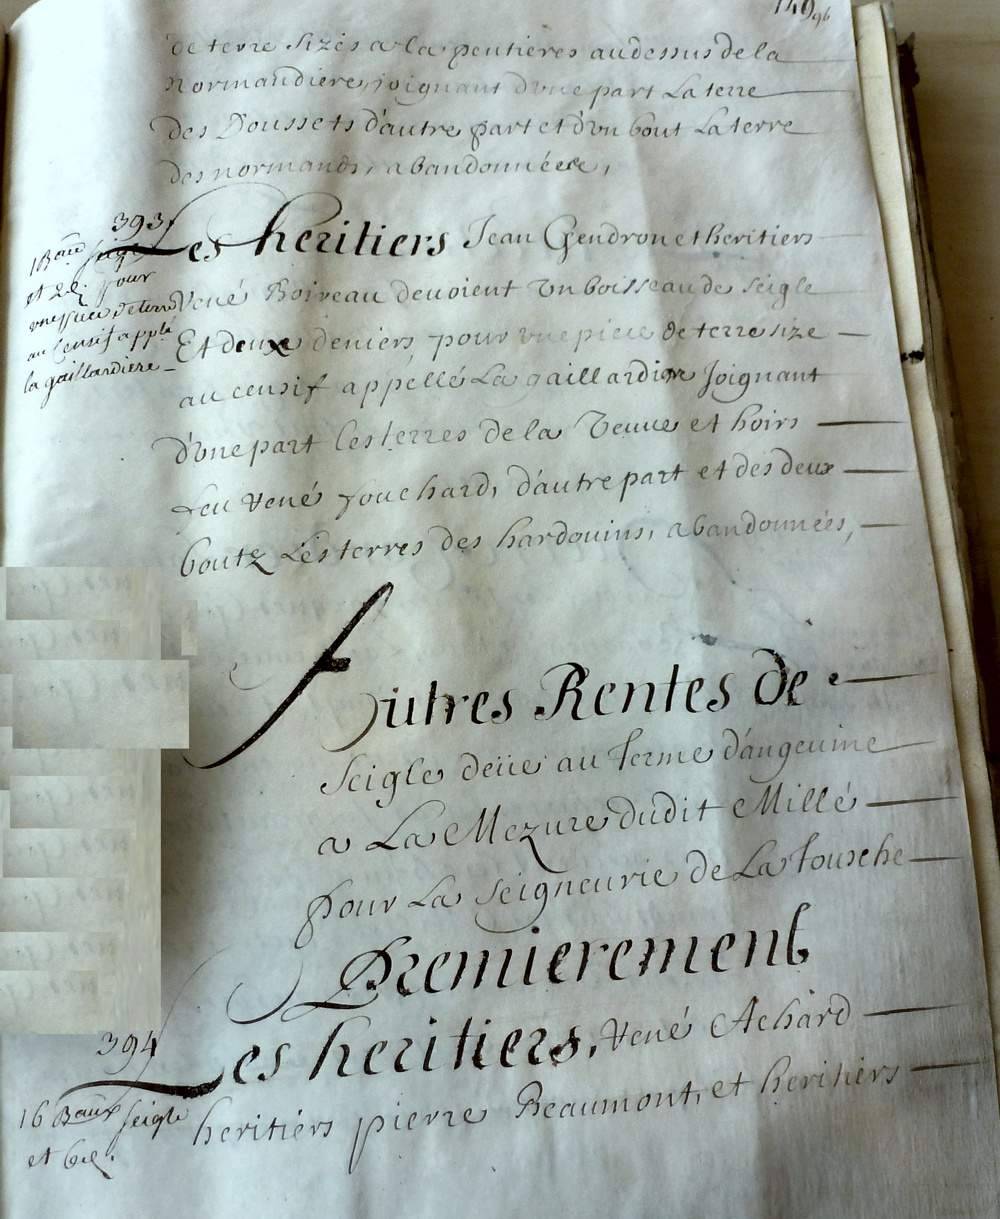 149 96
de terre sizés a la peutieres audessus de la
Normandiere, joignant d'vne part La terre
des Doussets d'autre part et d'vn bout La terre
des normands, abandonnéee,
393
Les heritiers Jean Gendron et heritiers
René Boiveau devoient Vn boisseau de seigle
Et deuxe deniers pour vne piece de terre size
au censif appellé La gaillardiere Joignant
d'vne part les terres de la Veuue et hoirs
feu René fouchard, d'autre part et des deux
boutz Les terres des hardouins, abandonnées,
1 Bau seigle
et 2d. pour
vne piece de terre
au Censif applé
la gaillardiere
Autres Rentes de
Seigle deüe au terme d'angeuine
a La Mezure dudit Millé
pour La seigneurie de La Tousche
Premierement
394
Les heritiers, René Achard
heritiers pierre Beaumont, et heritiers
16 Baux seigle
et 6d.